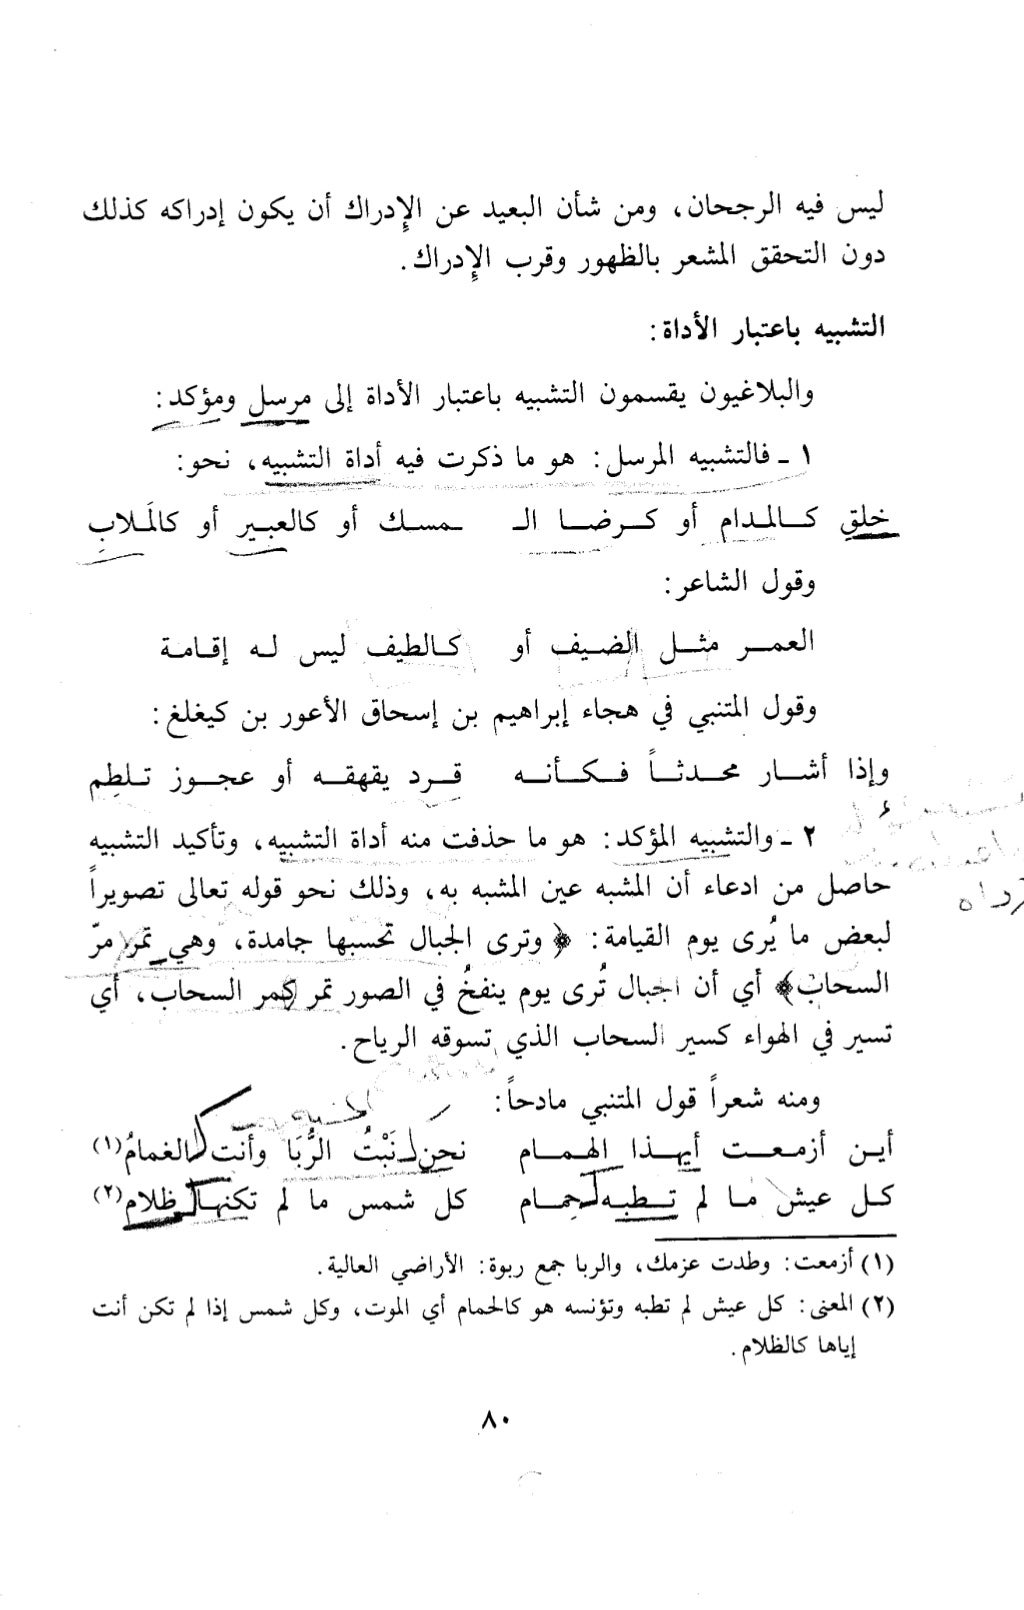 ليس فيه الرجحان، ومن شأن البعيد عن الإدراك أن يكون إدراكه كذلك
دون التحقق المشعر بالظهور وقرب الإدراك.
التشبيه باعتبار الأداة:
والبلاغيون يقسمون التشبيه باعتبار الأداة إلى مرسل ومؤكد:
١ ـ فالتشبيه المرسل: هو ما ذكرت فيه أداة التشبيه، نحو:
خلقِ كالمدام أو كرضا الـ ـمسك أو كالعبير أو كالمَلابِ
وقول الشاعر:
العمر مثل الضيف أو كالطيف ليس له إقامة
وقول المتنبي في هجاء إبراهيم بن إسحاق الأعور بن كيغلغ:
وإذا أشار محدثاً فكأنه قرد يقهقه أو عجوز تلطِم
٢ ـ والتشبيه المؤكد: هو ما حذفت منه أداة التشبيه، وتأكيد التشبيه
حاصل من ادعاء أن المشبه عين المشبه به، وذلك نحو قوله تعالى تصويراً
لبعض ما يُرى يوم القيامة: ﴿ وترى الجبال تحسبها جامدة، وهي تمر مرّ
السحاب﴾ أي أن الجبال تُرى يوم ينفخُ في الصور تمر كمر السحاب، أي
تسير في الهواء كسير السحاب الذي تسوقه الرياح.
ومنه شعراً قول المتنبي مادحاً:
أين أزمعت أيهذا الهمام نحن نَبْتُ الرُّبَا وأنت الغمامُ(١)
كل عيش ما لم تطبه حِمام كل شمس ما لم تكنها ظلام(٢)
(١) أزمعت: وطدت عزمك، والربا جمع ربوة: الأراضي العالية.
(٢) المعنى: كل عيش لم تطبه وتؤنسه هو كالحمام أي الموت، وكل شمس إذا لم تكن أنت
إياها كالظلام.
٨٠